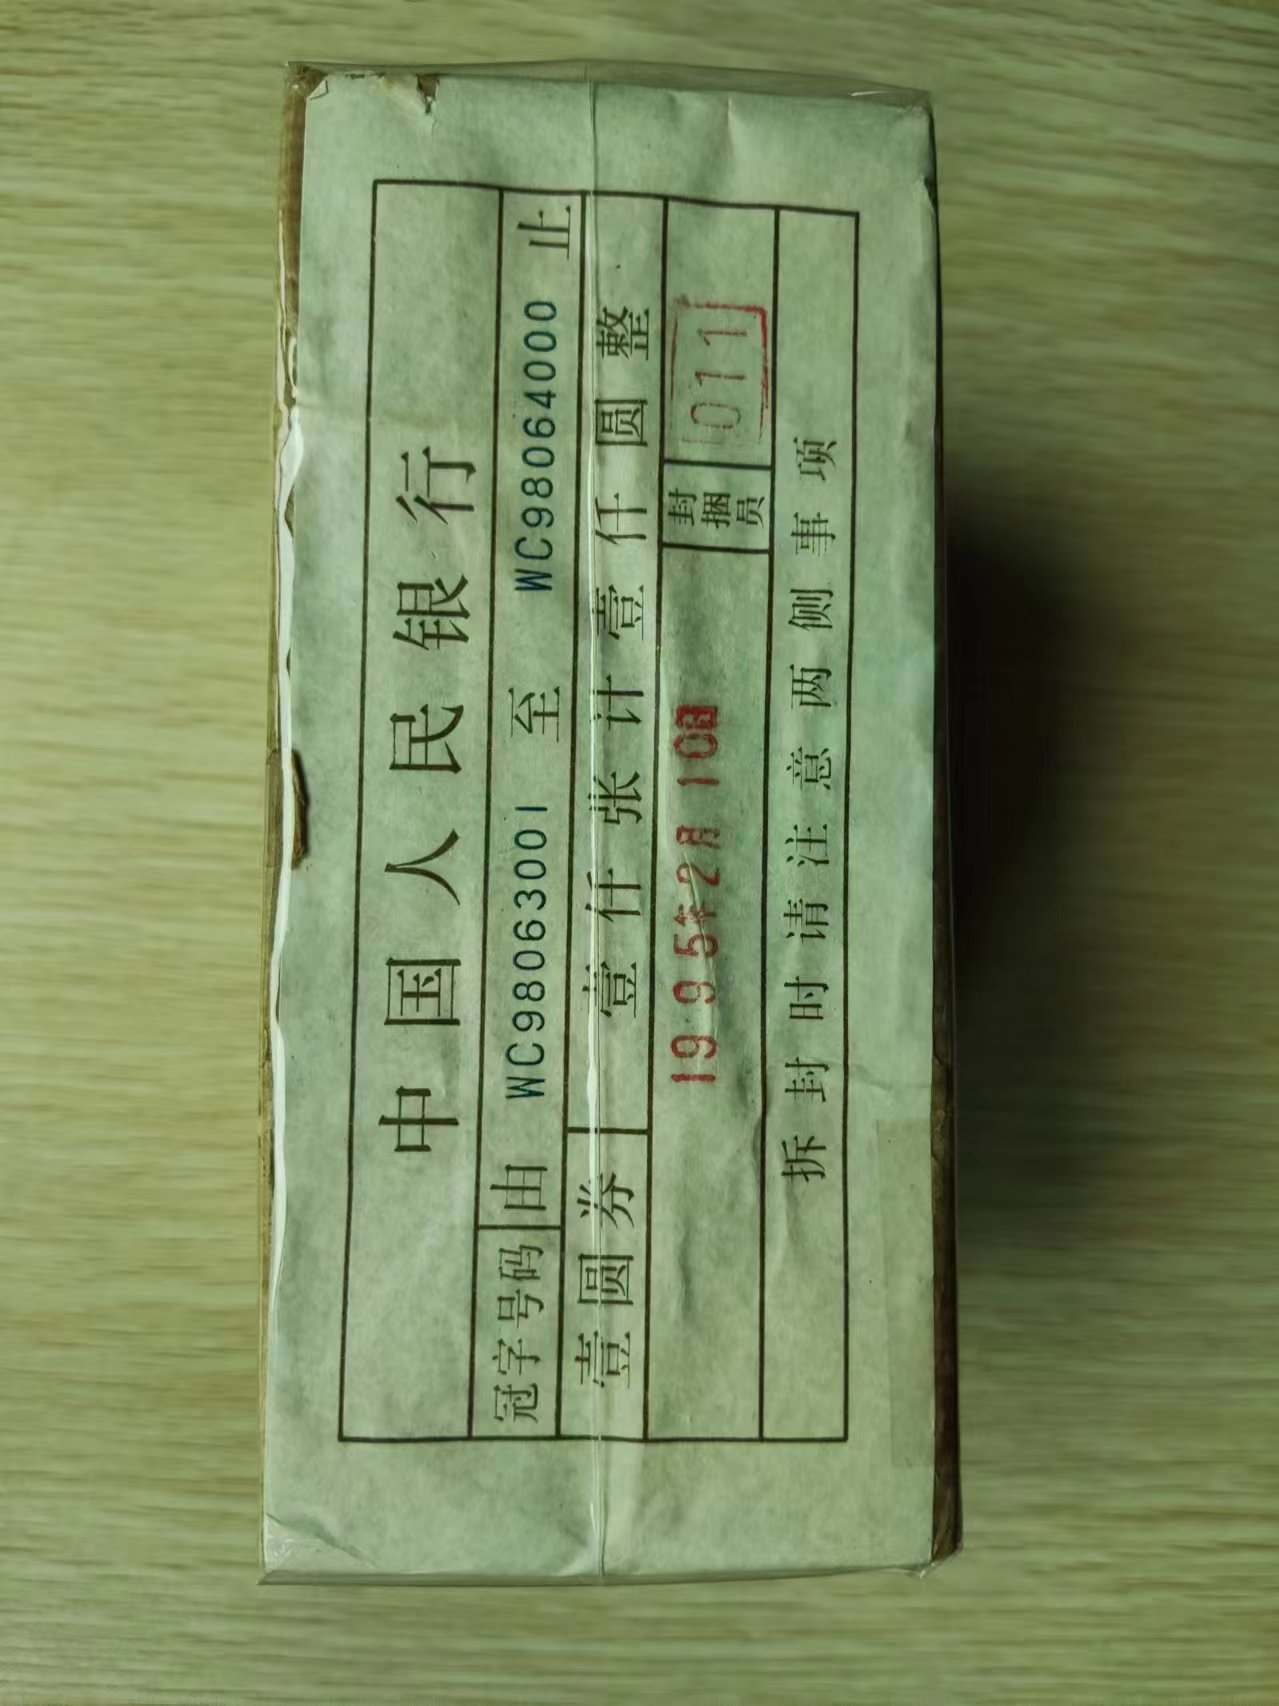 中国人民银行
冠字号码 由 WC98063001 至 WC98064000 止
壹圆券 壹仟张计壹仟圆整
1995年2月10日 封捆员 011
拆封时请注意两侧事项